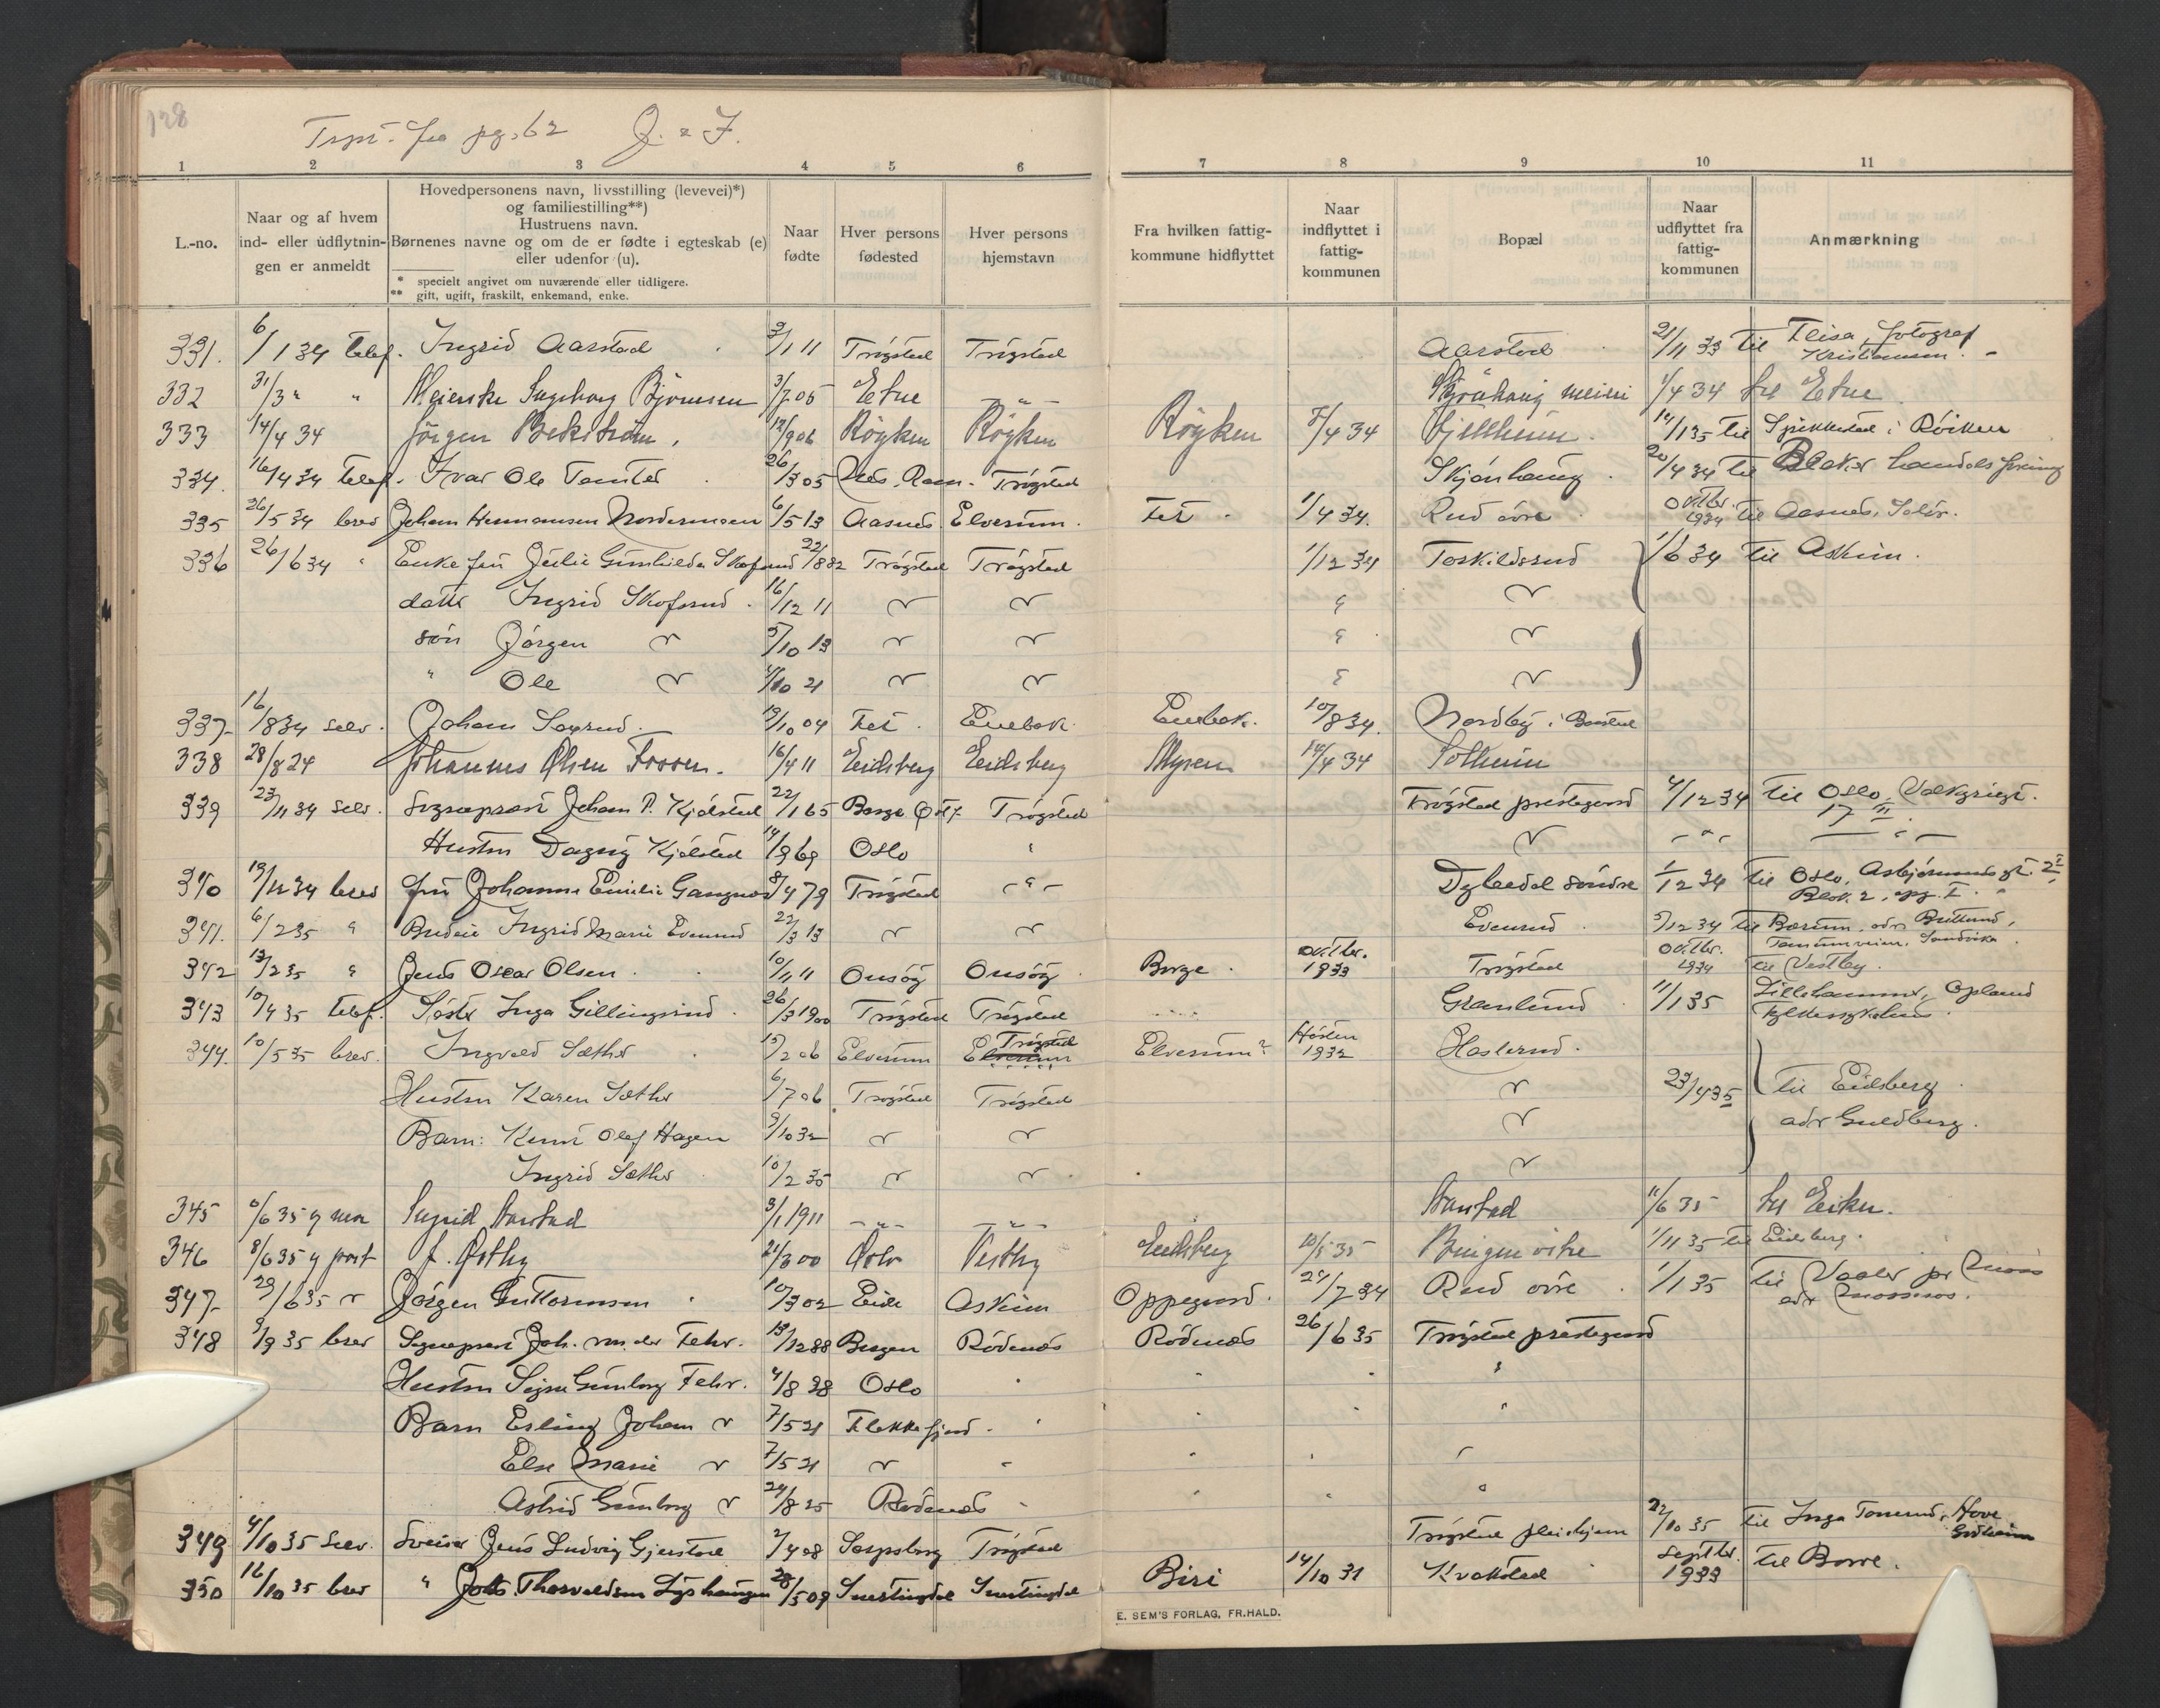 128
fra pg. 62 J.
1 2 3 4 5 6 7 8 9 10 11
L.-no.
Naar og af hvem ind- eller udflytnin-gen er anmeldt
Hovedpersonens navn, livsstilling (levevei)*)
og familiestilling**)
Hustruens navn.
Børnenes navne og om de er fødte i egteskab (e)
eller udenfor (u).
* specielt angivet om nuværende eller tidligere.
** gift, ugift, fraskilt, enkemand, enke.
Naar fødte
Hver persons fødested
Hver persons hjemstavn
Fra hvilken fattig-kommune hidflyttet
Naar indflyttet i fattig-kommunen
Bopæl
Naar udflyttet fra fattig-kommunen
Anmærkning
331. 6/1 34 telef. Ingrid Aarstad 3/1 11 Trøgstad Trøgstad Aarstad 21/11 33 til Flisa, fotograf Kristiansen.
332 31/3 " " Meierske Ingeborg Bjørnsen 3/7 05 Etne — " — Skjønhaug meieri 1/4 34 til Etne
333 14/4 34 Jørgen Bekstrøm. 12/9 06 Røyken Røyken Røyken 5/4 34 14/1 35 til Spikkestad i Røiken
334. 16/4 34 telef. Ivar Ole Tomter 26/3 05 Nes, Rom. Trøgstad Skjønhaug 20/4 34 til Blaker
335 26/5 34 brev Johan Hermansen Nordermoen 6/5 13 Aasnes Elverum. Fet 1/4 34. Rud øvre Oktbr. 1934 til Aasnes, Solør.
336 26/6 34 " Enke fru Julie Gunhilda Skofsrud 22/1 882 Trøgstad Trøgstad 1/12 31 Toskildsrud 1/6 34 til Askim.
dattr Ingrid Skofsrud. 16/12 11
søn Jørgen 5/10 13
" Ole 4/10 21
337. 16/8 34 selv. Johan 13/10 04 Fet Enebak Enebak. 10/8 34. Nordby i Båstad
338 28/8 24 Johannes Olsen Fossen. 16/4 11 Eidsberg Eidsberg Mysen 14/4 34 Solheim
339 23/11 34 selv. Sogneprest Johan P. Kjølstad 22/1 65 Borge Østf. Trøgstad Trøgstad prestegaard 4/12 34 til Oslo, Valkyriegt. 17 II.
Hustru Dagny Kjølstad 14/9 69 Oslo " — " — — " —
340 13/12 34 brev fru Johanne Emilie Gangnæs 8/4 79 Trøgstad — " — Dybedal søndre 1/12 34 til Oslo, Asbjørnsensgt. 2I, Blok 2, opg. I.
341. 6/2 35 " Budeie Ingrid Marie Evenrud 22/3 13 Evenrud 5/12 34 til Bærum, adr. Tanumveien, Sandvika
342 13/2 35 " Jens Oscar Olsen. 10/1 11 Onsøy Onsøy. Borge. Oktbr. 1933 Trøgstad Oktbr. 1934 til Vestby.
343 10/4 35 telef. Søster Inga Gillingsrud. 26/3 1900 Trøgstad Trøgstad Granlund 11/1 35 Lillehammer, Opland fylkessykehus.
344. 10/5 35 brev. Ingvald Sæther 15/2 06 Elverum Trøgstad Elverum Elverum? Høsten 1932 Haslerud. 23/4 35 til Eidsberg adr Guldberg.
Hustru Karen Sæther 6/7 06 Trøgstad Trøgstad
Barn: Knut Olaf Hagen 3/10 32
Ingrid Sæther 10/2 35
345 6/6 35 g mor Ingrid Aarstad 3/1 1911 — " — — " — Aarstad 11/6 35 til Eiker.
346 8/6 35 g post J. Østby 21/3 00 Oslo Vestby Eidsberg 10/5 35 Bingen østre 1/11 35 til Eidsberg.
347. 29/6 35 Jørgen Guttormsen 10/3 02 Eide Askim Oppegaard. 24/7 34 Rud øvre 1/1 35 til Vaaler pr Moss adr Mossmos.
348 3/9 35 brev Sogneprest Joh. van der Fehr. 13/12 88 Bergen Rødenæs Rødenæs 26/6 35 Trøgstad prestegaard
Hustru Signe Gunborg Fehr. 4/8 98 Oslo
Barn Erling Johan 7/5 21 Flekkefjord
Else Marie 7/5 21
Astrid Gunborg 24/8 25 Rødenæs
349 4/10 35 selv. Sveiser Jens Ludvig Gjerstad 2/4 08 Sarpsborg Trøgstad Trøgstad pleiehjem 22/10 35 til Inga Tonerud, Hove
350 16/10 35 brev " Johs Thorvaldsen Lyshaugen 28/5 09 Snertingdal Snertingdal Biri 14/10 31 Krokstad septbr. 1933 til Borre.
E. SEM'S FORLAG, FR.HALD.